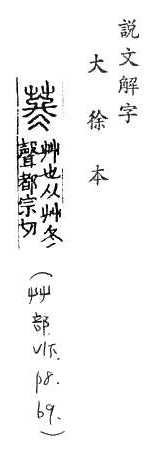 說文解字
大徐本
苳
艸也从艸冬
聲都宗切
(艸部.VI下.p8.b9.)